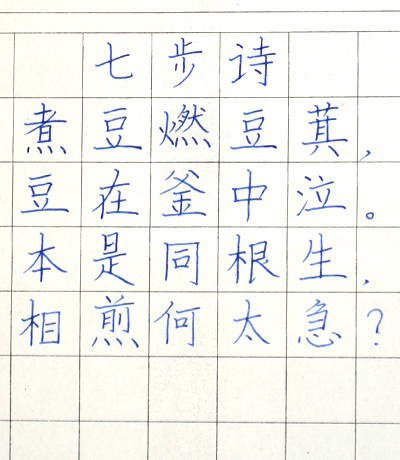 七步诗
煮豆燃豆萁，
豆在釜中泣。
本是同根生，
相煎何太急？